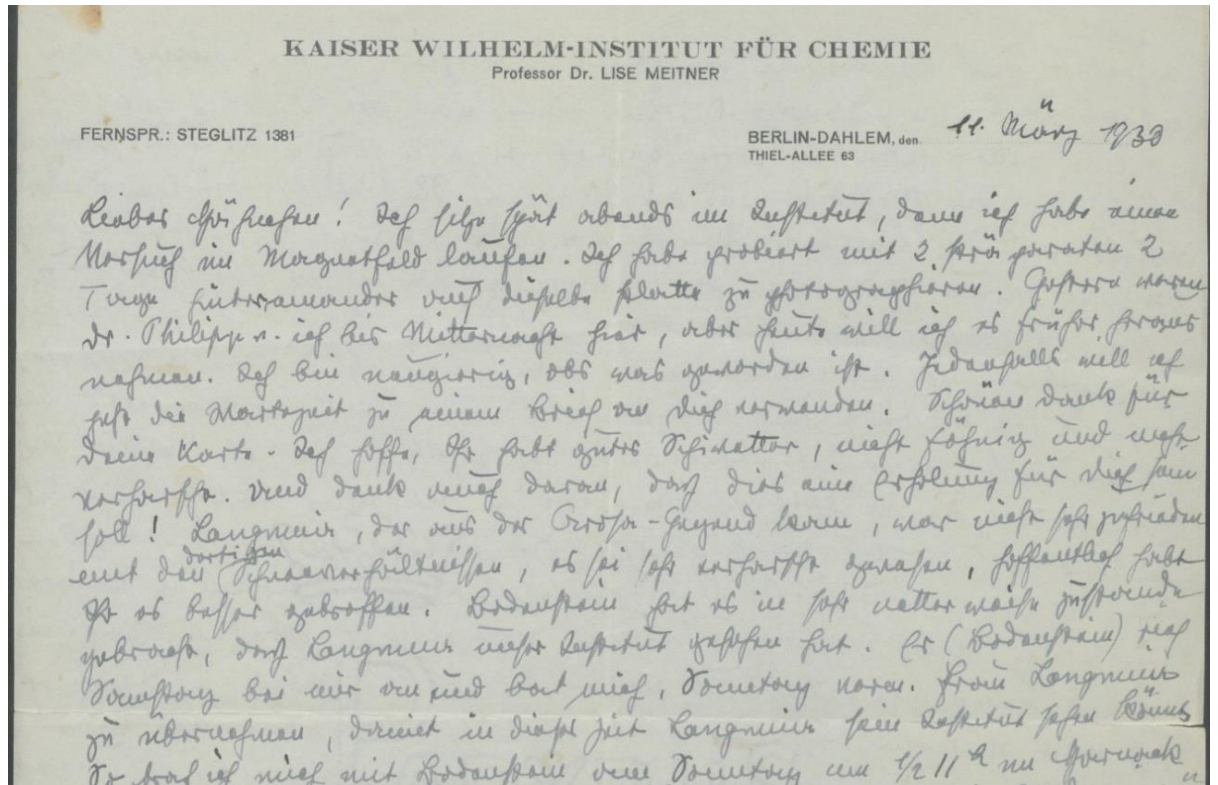 KAISER WILHELM-INSTITUT FÜR CHEMIE
Professor Dr. LISE MEITNER
11. März 1930
FERNSPR.: STEGLITZ 1381
BERLIN-DAHLEM, den
THIEL-ALLEE 63
Liebes Hähnchen! Ich sitze spät abends im Institut, denn ich habe einen
Versuch im Magnetfeld laufen. Ich habe probiert mit 2 Präparaten 2
Tage hintereinander auf dieselbe Platte zu photographieren. Gestern waren
Dr. Philipp u. ich bis Mitternacht hier, aber heute will ich es früher heraus
nehmen. Ich bin neugierig, obs was geworden ist. Jedenfalls will ich
jetzt die Wartezeit zu einem Brief an Dich verwenden. Schönen Dank für
Deine Karte. Ich hoffe, Ihr habt gutes Schiwetter, nicht föhnig und nicht
verharscht. Und denk auch daran, daß dies eine Erholung für Dich sein
soll! Langmuir, der aus der Arosa-Gegend kam, war nicht sehr zufrieden
mit den dortigen Schneeverhältnissen, es sei sehr verharscht gewesen, hoffentlich habt
Ihr es besser getroffen. Bodenstein hat es in sehr netter Weise zustande
gebracht, daß Langmuir unser Institut gesehen hat. Er (Bodenstein) rief
Samstag bei mir an und bat mich, Sonntag vorm. Frau Langmuir
zu übernehmen, damit in dieser Zeit Langmuir sein Institut sehen könnte
So traf ich mich mit Bodenstein am Sonntag um 1/2 11 h im Harnack